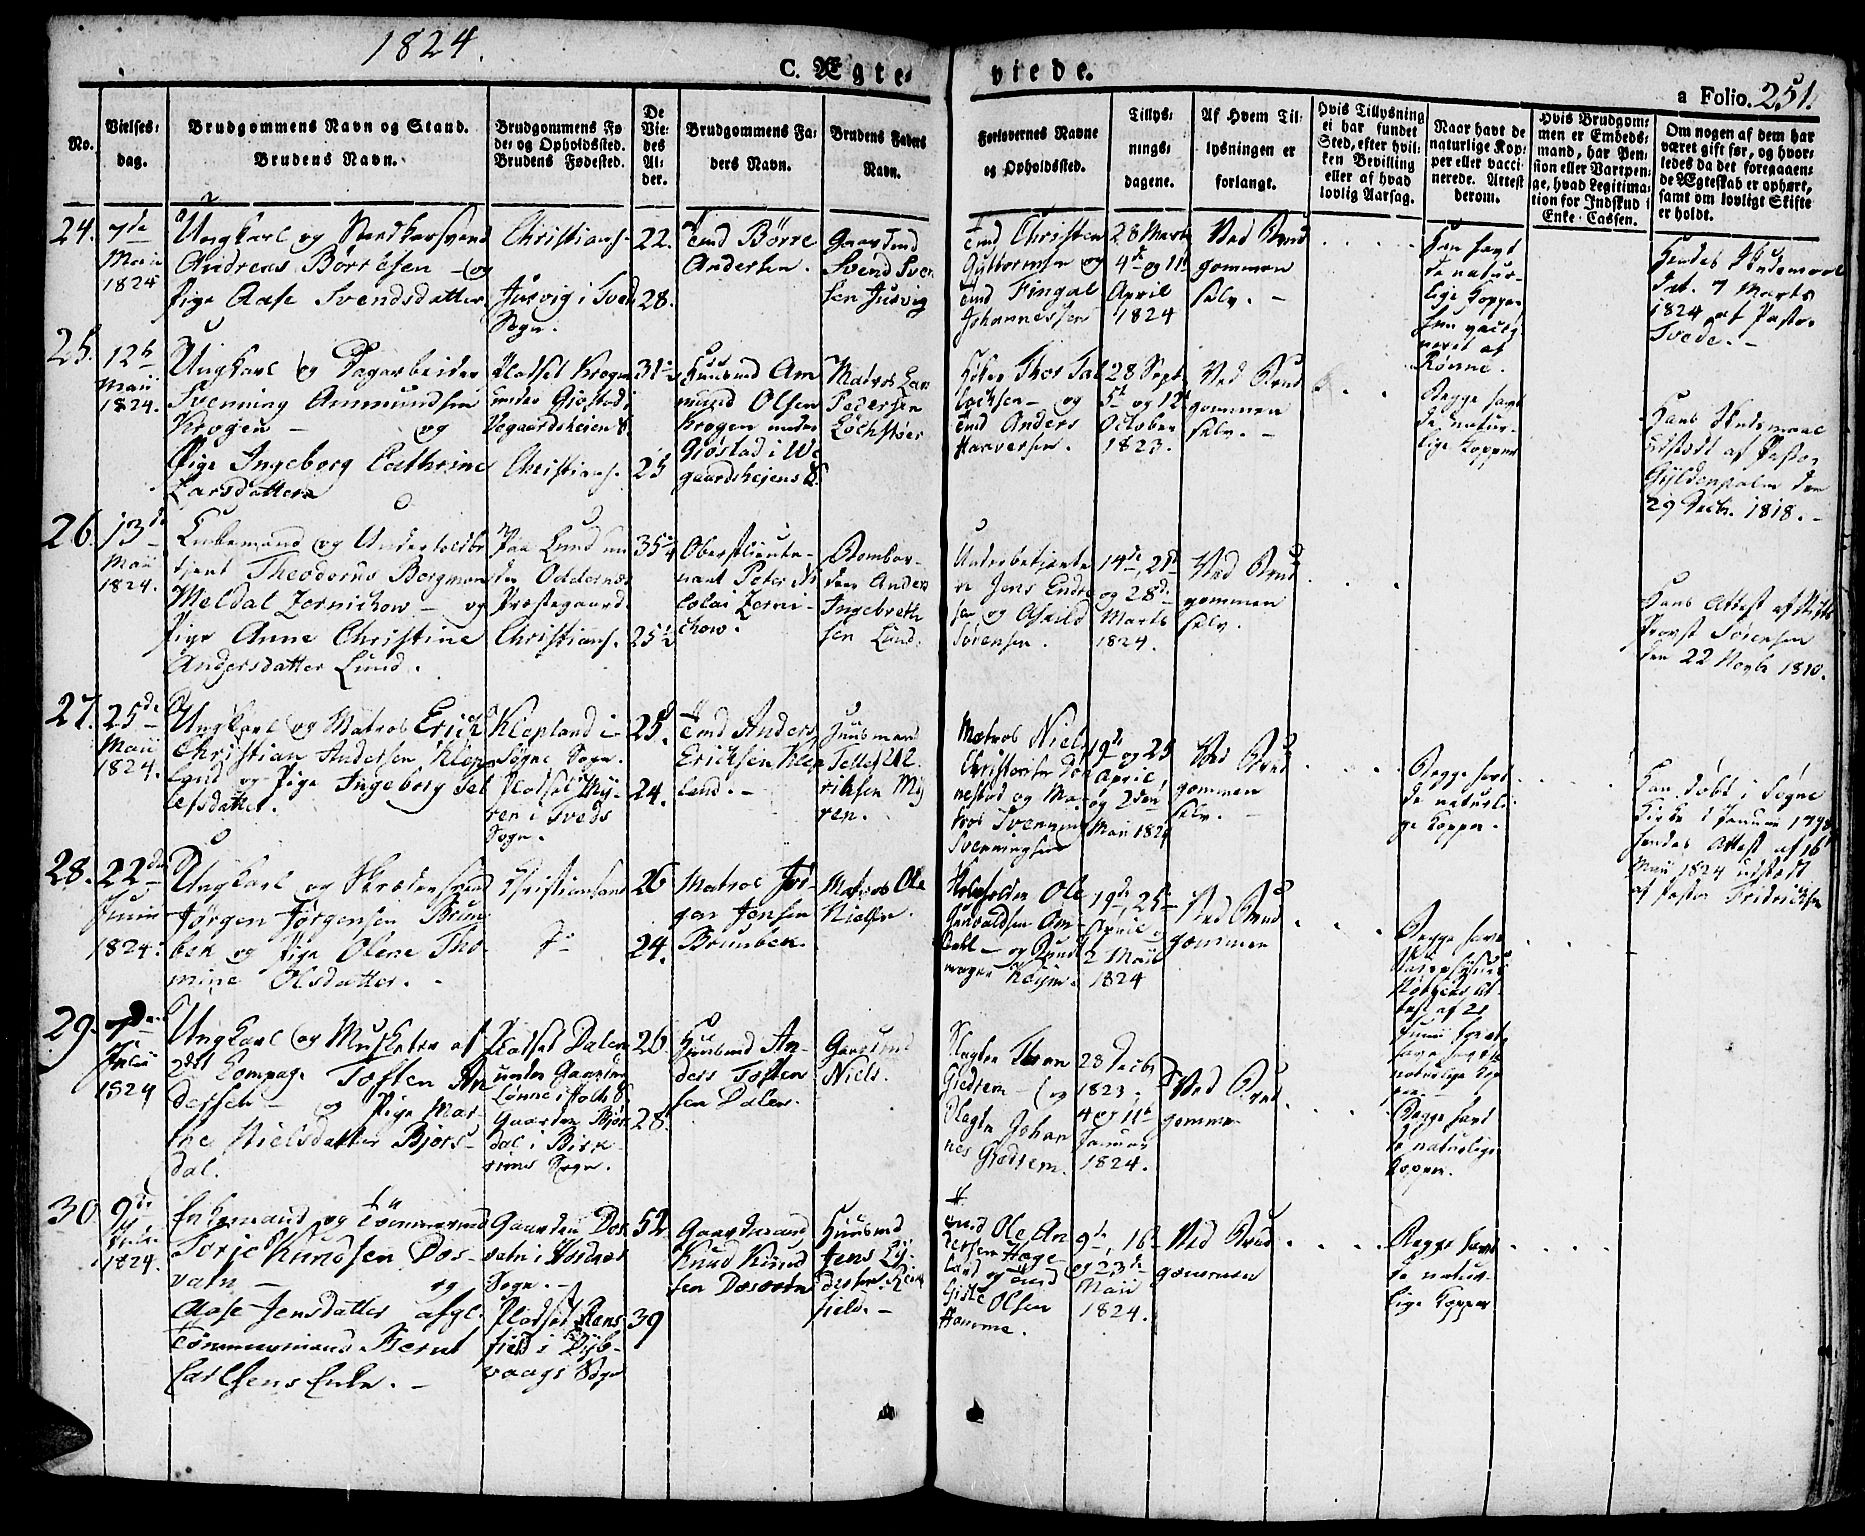 1824.
C. Ægte-
viede.
a Folio. 251.
No.
Vielses-
dag.
Brudgommens Navn og Stand.
Brudens Navn.
Brudgommens Fø
de- og Opholdssted.
Brudens Fødested.
De
Vie-
des
Al-
der.
Brudgommens Fa-
ders Navn.
Brudens Faders
Navn.
Forlovernes Navne
og Opholdssted.
Tillys-
nings-
dagene.
Af Hvem Til-
lysningen er
forlangt.
Hvis Tillysning
ei har fundet
Sted, efter hvil-
ken Bevilling
eller af hvad
lovlig Aarsag.
Naar havt de
naturlige Kop-
per eller vacci-
nerede. Attest
derom.
Hvis Brudgom-
men er Embeds-
mand, har Pen-
sion eller Vartpen-
ge, hvad Legitima-
tion for Indskud i
Enke-Cassen.
Om nogen af dem har
været gift før, og hvor-
ledes da det foregaaen-
de Ægteskab er ophørt,
samt om lovligt Skifte
er holdt.
24.
7de
Maii
1824
Ungkarl og
Andreas Börresen - og
Pige Aase Svendsdatter
Christians.
Jusvig i Tved
Sogn.
22.
28.
Tmd Börre
Andersen.
Gaardmd
Svend Sven
sen Jusvig
Tmd Christen
Guttormsen og
Tmd Fingal
Johannessen
28 Marts
4de og 11te
April
1824
Ved Brud
gommen
selv. -
Han havt
de natur-
lige Kopper
hun vacci
neret af
Rönne.
Hendes Skudsmaal
Dat. 7 Marts
1824 af Pastor
Tvede. -
25.
12te
Maii
1824.
Ungkarl og Dagarbeider
Svenning Ammundsen
Krogen - og
Pige Ingeborg Cathrine
Larsdatter
Pladset Krogen
under Giøstad i
Vegaardsheien S.
Christians.
31½
25
Huusmd Am
mund Olsen
Krogen under
Giöstad i We
gaardsheiens S.
Matros Lars
Pedersen
Thor
- og
Tmd Anders
Haaversen.
28 Sept
5te og 12te
October
1823.
Ved Brud
gommen
selv. -
Begge havt
de natur-
lige Kopper
Hans Skudsmaal
udstædt af Pastor
Gyldenpalm den
29 Decbr. 1818. -
26.
13de
Maii
1824.
Enkemand og Underbetient
Theodorus Bergman
Meldal Zernichow - og
Pige Anne Christine
Andersdatter Lund.
Paa Lund un
der Oddernes
Præstegaard.
Christians.
35¼
25½
Oberstlieute-
nant Peter Ni
colai Zerni-
chow.
Bombar-
deer Anders
Ingebreth
sen Lund.
Underbetiente
Jens Endre
sen og
Sörensen.
14de, 21de
og 28de
Marts
1824.
Ved Brud
gommen
selv.
Hans Attest af Stifts
Provst Sörensen
den 22 Novbr 1810.
27.
25de
Maii
1824.
Ungkarl og Matros Erich
Christian Andersen Klep
land og Pige Ingeborg Tel
lefsdatter.
Klepland i
Søgne Sogn.
Pladset My-
ren i Tveds
Sogn.
25.
24.
Tmd Anders
Ericksen Klep
land. -
Huusmand
Tellef
My
ren.
Matros Niels
Christensen Don
nestad og Ma-
tros Svenning
Svenningsen
19de og 25
April
og 2den
Maii 1824
Ved Brud
gommen
selv. -
Begge havt
de naturli-
ge Kopper.
Han døbt i Søgne
Kirke i Januar 1799
hendes Attest af 16
Maii 1824 udstædt
af Pastor Fridrichsen
28.
22den
Junii
1824.
Ungkarl og Skrædersvend
Jörgen Jörgensen Brun
bek og Pige Olene Tho-
mine Olsdatter. -
Christiansand
do
26
24.
Matros Jör-
gen Jensen
Brunbek.
Matros Ole
Nielsen.
Ole
og
19de, 25de
April og
2 Maii
1824
Ved Brud
gommen
Begge have
af 21
Junii
have havt
naturlige Kop
per.
29.
7de
Julii
1824
Ungkarl og Musketeer af
2det Compag. Tosten An
dersen - og Pige Mar-
the Nielsdatter Bjørs-
dal.
Pladset Dalen
under Gaarden
i Holts S.
Gaarden Bjørs
dal i Birk-
rims Sogn.
26
28.
Huusmd An-
ders Tosten
sen Dalen.
Gaardmd
Niels.
Slagter Thom
Giedsem - og
Slagter Johan
nes Giedsem.
28 Decbr
1823,
4 og 11te
Januar
1824.
Ved Brud
gommen
Begge havt
de naturlige
Kopper.
30
9de
Julii
1824.
Enkemand og Tömmermand
Torje Knudsen Dos-
vatn - og
Aase Jensdatter afgl.
Tömmermand Bernt
Carlsens Enke. -
Gaarden Dos
vatn i
Sogn. -
Pladset Rens
field i Dyb-
vaags Sogn
52
39
Gaardmand
Knud Knud
sen Dosvatn
Huusmd
Jens
field. -
Tmd Ole An
dersen Hæge
land og Tmd
Giste Olsen
Homme.
9de, 16de
og 23de
Maii
1824.
Ved Brud
gommen
Begge havt
de natur-
lige Kopper